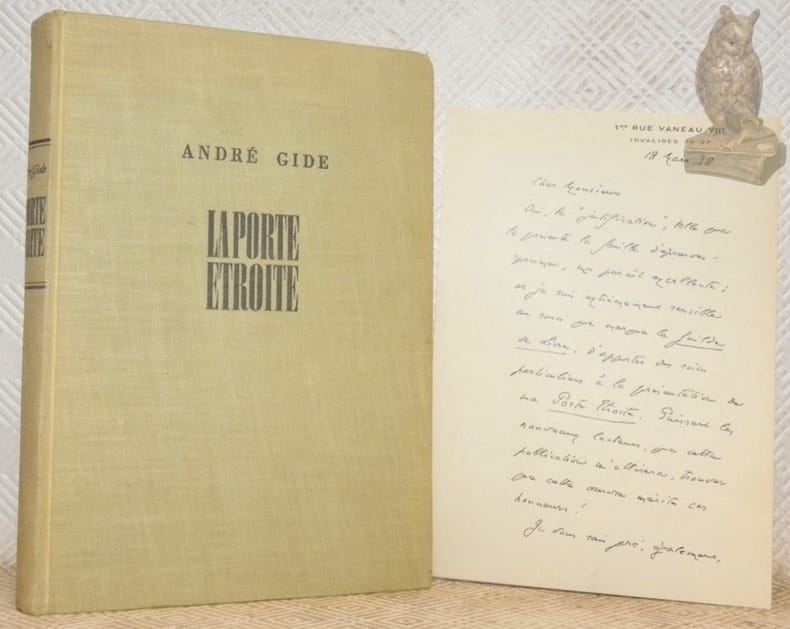 ANDRÉ GIDE
LA PORTE
ETROITE
Gide
PORTE
1bis RUE VANEAU. VIIe
INVALIDES
18 Mars 38
Cher Monsieur
Oui, la "justification", telle que
la présente la feuille d'épreuves-
spécimen, me paraît excellente ;
et je suis extrêmement sensible
au souci que marque la Guilde
du Livre, d'apporter des soins
particuliers à la présentation de
ma Porte Etroite. Puissent les
nouveaux lecteurs, que cette
publication m'attirera, trouver
que cette œuvre mérite ces
honneurs !
Je vous sais gré, également,